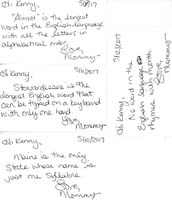 Oh Kenny, 5/9/2017
"Almost" is the longest
word in the English language
with all the letters in
alphabetical order.
Love,
Mommy
5/10/2017
Oh Kenny,
Stewardesses is the
longest English word that
can be typed on a keyboard
with only one hand.
Love,
Mommy
Oh Kenny, 5/11/2017
Maine is the only
State whose name is
just one syllable.
Love,
Mommy
5/12/2017
Oh Kenny,
No word in the
English language
rhymes with month.
Love,
Mommy